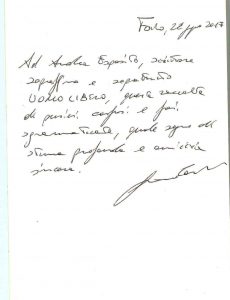 Ad Andrea Esposito, scrittore
sopraffino e soprattutto
UOMO LIBERO, questa raccolta
di pensieri confusi e forse
sgrammaticati, quale segno di
stima profonda e amicizia
sincera.